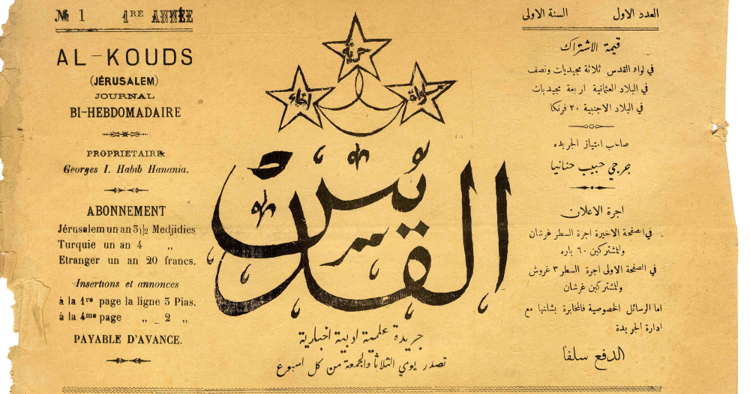 № 1 1RE ANNÉE
AL-KOUDS
(JÉRUSALEM)
JOURNAL
BI-HEBDOMADAIRE
PROPRIETAIRE
Georges I. Habib Hanania.
ABONNEMENT
Jérusalem un an 3 1/2 Medjidies
Turquie un an 4 „
Etranger un an 20 francs.
Insertions et annonces
à la 1re page la ligne 3 Pias.
à la 4me page „ 2 „
PAYABLE D'AVANCE.
حرية
اخاء
مساواة
القدس
جريدة علمية ادبية اخبارية
تصدر يومي الثلاثا والجمعة من كل اسبوع
العدد الاول السنة الاولى
قيمة الاشتراك
في لواء القدس ثلاثة مجيديات ونصف
في البلاد العثمانية اربعة مجيديات
في البلاد الاجنبية ٢٠ فرنكا
صاحب امتياز الجريده
جرجي حبيب حنانيا
اجرة الاعلان
في الصفحة الاخيرة اجرة السطر غرشان
وللمشتركين ٦٠ باره
في الصفحة الاولى اجرة السطر ٣ غروش
وللمشتركين غرشان
اما الرسائل الخصوصية فالمخابرة بشانها مع
ادارة الجريدة
الدفع سلفا